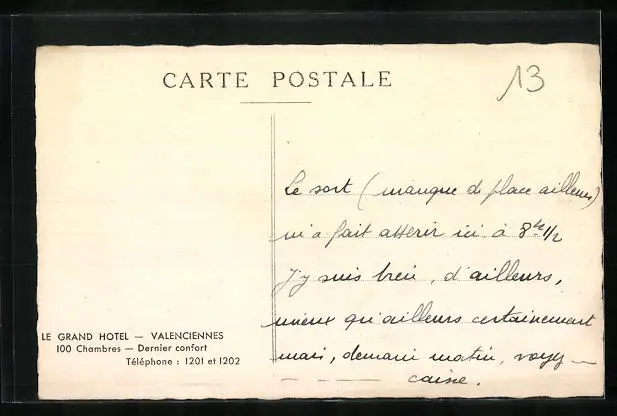 CARTE POSTALE
13
Le sort (manque de place ailleurs)
m'a fait atterir ici à 8h 1/2
J'y suis bien, d'ailleurs,
mieux qu'ailleurs certainement
mais, demain matin,
LE GRAND HOTEL — VALENCIENNES
100 Chambres — Dernier confort
Téléphone : 1201 et 1202